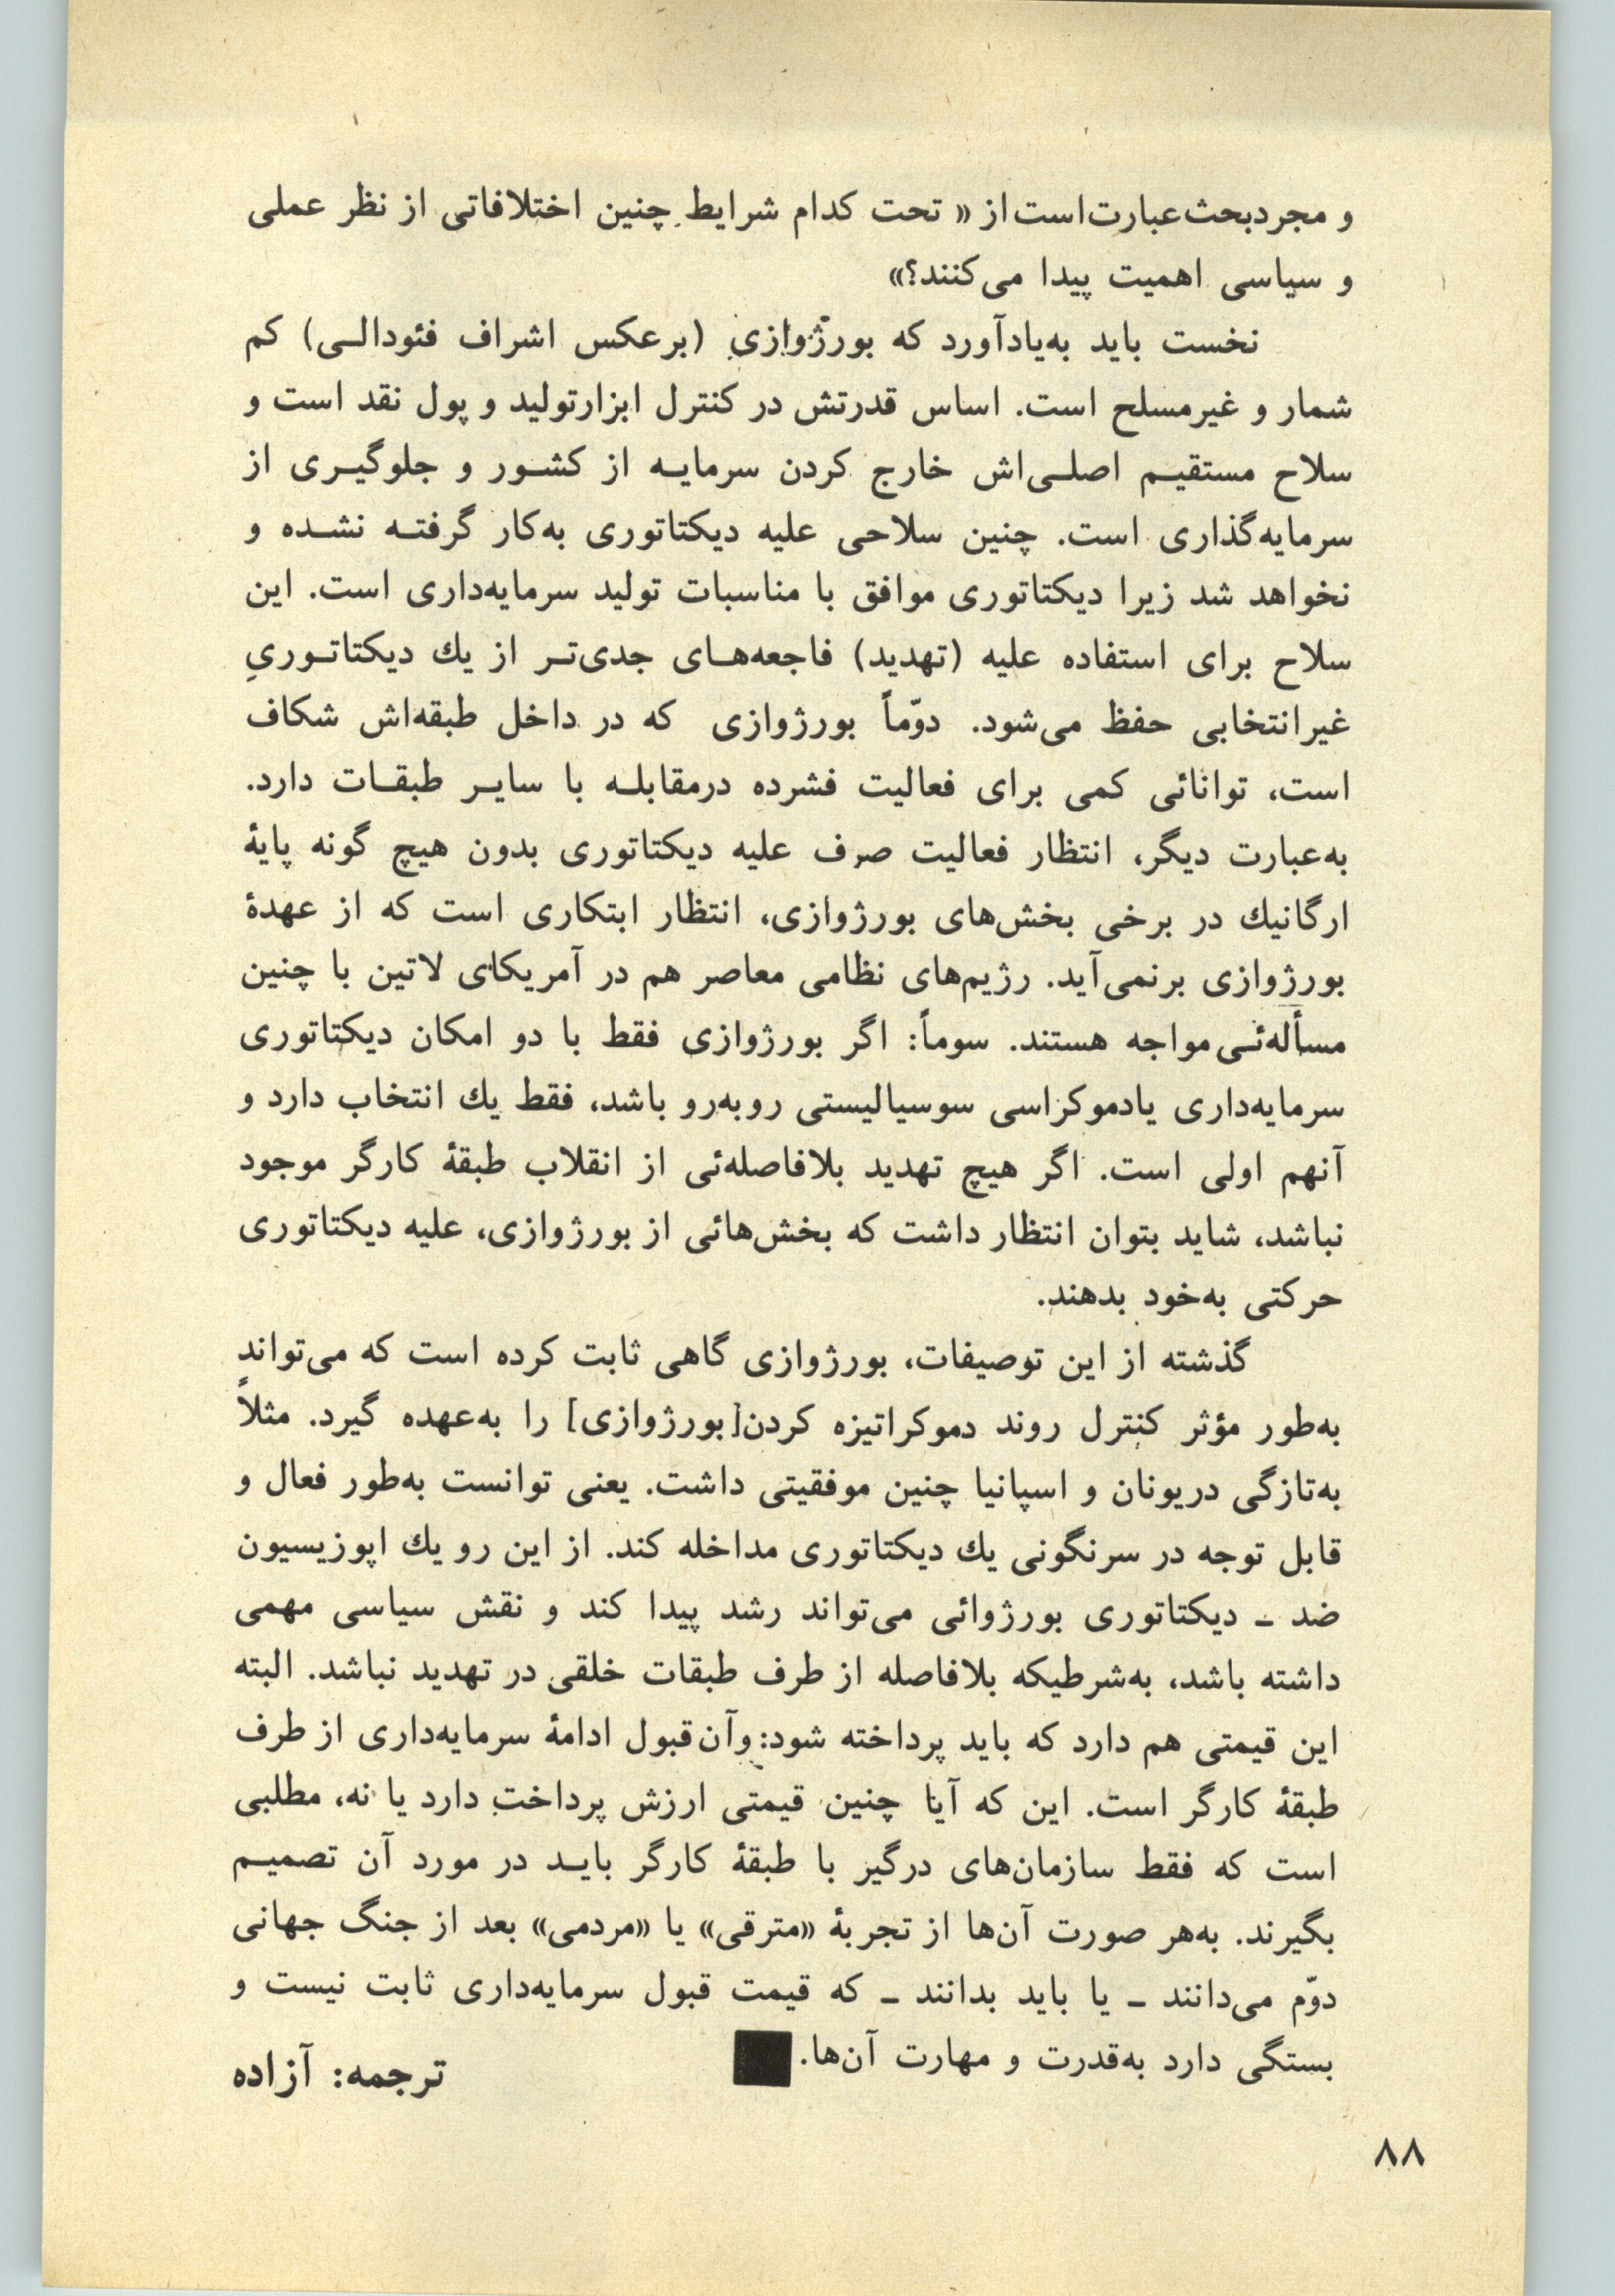 و مجردبحث‌عبارت‌است‌از « تحت کدام شرایط چنین اختلافاتی از نظر عملی
و سیاسی اهمیت پیدا می‌کنند؟»
نخست باید به‌یادآورد که بورژوازی (برعکس اشراف فئودالی) کم
شمار و غیرمسلح است. اساس قدرتش در کنترل ابزارتولید و پول نقد است و
سلاح مستقیم اصلی‌اش خارج کردن سرمایه از کشور و جلوگیری از
سرمایه‌گذاری است. چنین سلاحی علیه دیکتاتوری به‌کار گرفته نشده و
نخواهد شد زیرا دیکتاتوری موافق با مناسبات تولید سرمایه‌داری است. این
سلاح برای استفاده علیه (تهدید) فاجعه‌های جدی‌تر از یك دیکتاتوریِ
غیرانتخابی حفظ می‌شود. دوّماً بورژوازی که در داخل طبقه‌اش شکاف
است، توانائی کمی برای فعالیت فشرده درمقابله با سایر طبقات دارد.
به‌عبارت دیگر، انتظار فعالیت صرف علیه دیکتاتوری بدون هیچ گونه پایهٔ
ارگانیك در برخی بخش‌های بورژوازی، انتظار ابتکاری است که از عهدهٔ
بورژوازی برنمی‌آید. رژیم‌های نظامی معاصر هم در آمریکای لاتین با چنین
مسأله‌ئی مواجه هستند. سوماً: اگر بورژوازی فقط با دو امکان دیکتاتوری
سرمایه‌داری یادموکراسی سوسیالیستی روبه‌رو باشد، فقط یك انتخاب دارد و
آنهم اولی است. اگر هیچ تهدید بلافاصله‌ئی از انقلاب طبقهٔ کارگر موجود
نباشد، شاید بتوان انتظار داشت که بخش‌هائی از بورژوازی، علیه دیکتاتوری
حرکتی به‌خود بدهند.
گذشته از این توصیفات، بورژوازی گاهی ثابت کرده است که می‌تواند
به‌طور مؤثر کنترل روند دموکراتیزه کردن[بورژوازی] را به‌عهده گیرد. مثلاً
به‌تازگی دریونان و اسپانیا چنین موفقیتی داشت. یعنی توانست به‌طور فعال و
قابل توجه در سرنگونی یك دیکتاتوری مداخله کند. از این رو یك اپوزیسیون
ضد ـ دیکتاتوری بورژوائی می‌تواند رشد پیدا کند و نقش سیاسی مهمی
داشته باشد، به‌شرطیکه بلافاصله از طرف طبقات خلقی در تهدید نباشد. البته
این قیمتی هم دارد که باید پرداخته شود: وآن‌قبول ادامهٔ سرمایه‌داری از طرف
طبقهٔ کارگر است. این که آیا چنین قیمتی ارزش پرداخت دارد یا نه، مطلبی
است که فقط سازمان‌های درگیر با طبقهٔ کارگر باید در مورد آن تصمیم
بگیرند. به‌هر صورت آن‌ها از تجربهٔ «مترقی» یا «مردمی» بعد از جنگ جهانی
دوّم می‌دانند ـ یا باید بدانند ـ که قیمت قبول سرمایه‌داری ثابت نیست و
بستگی دارد به‌قدرت و مهارت آن‌ها. ■
ترجمه: آزاده
۸۸